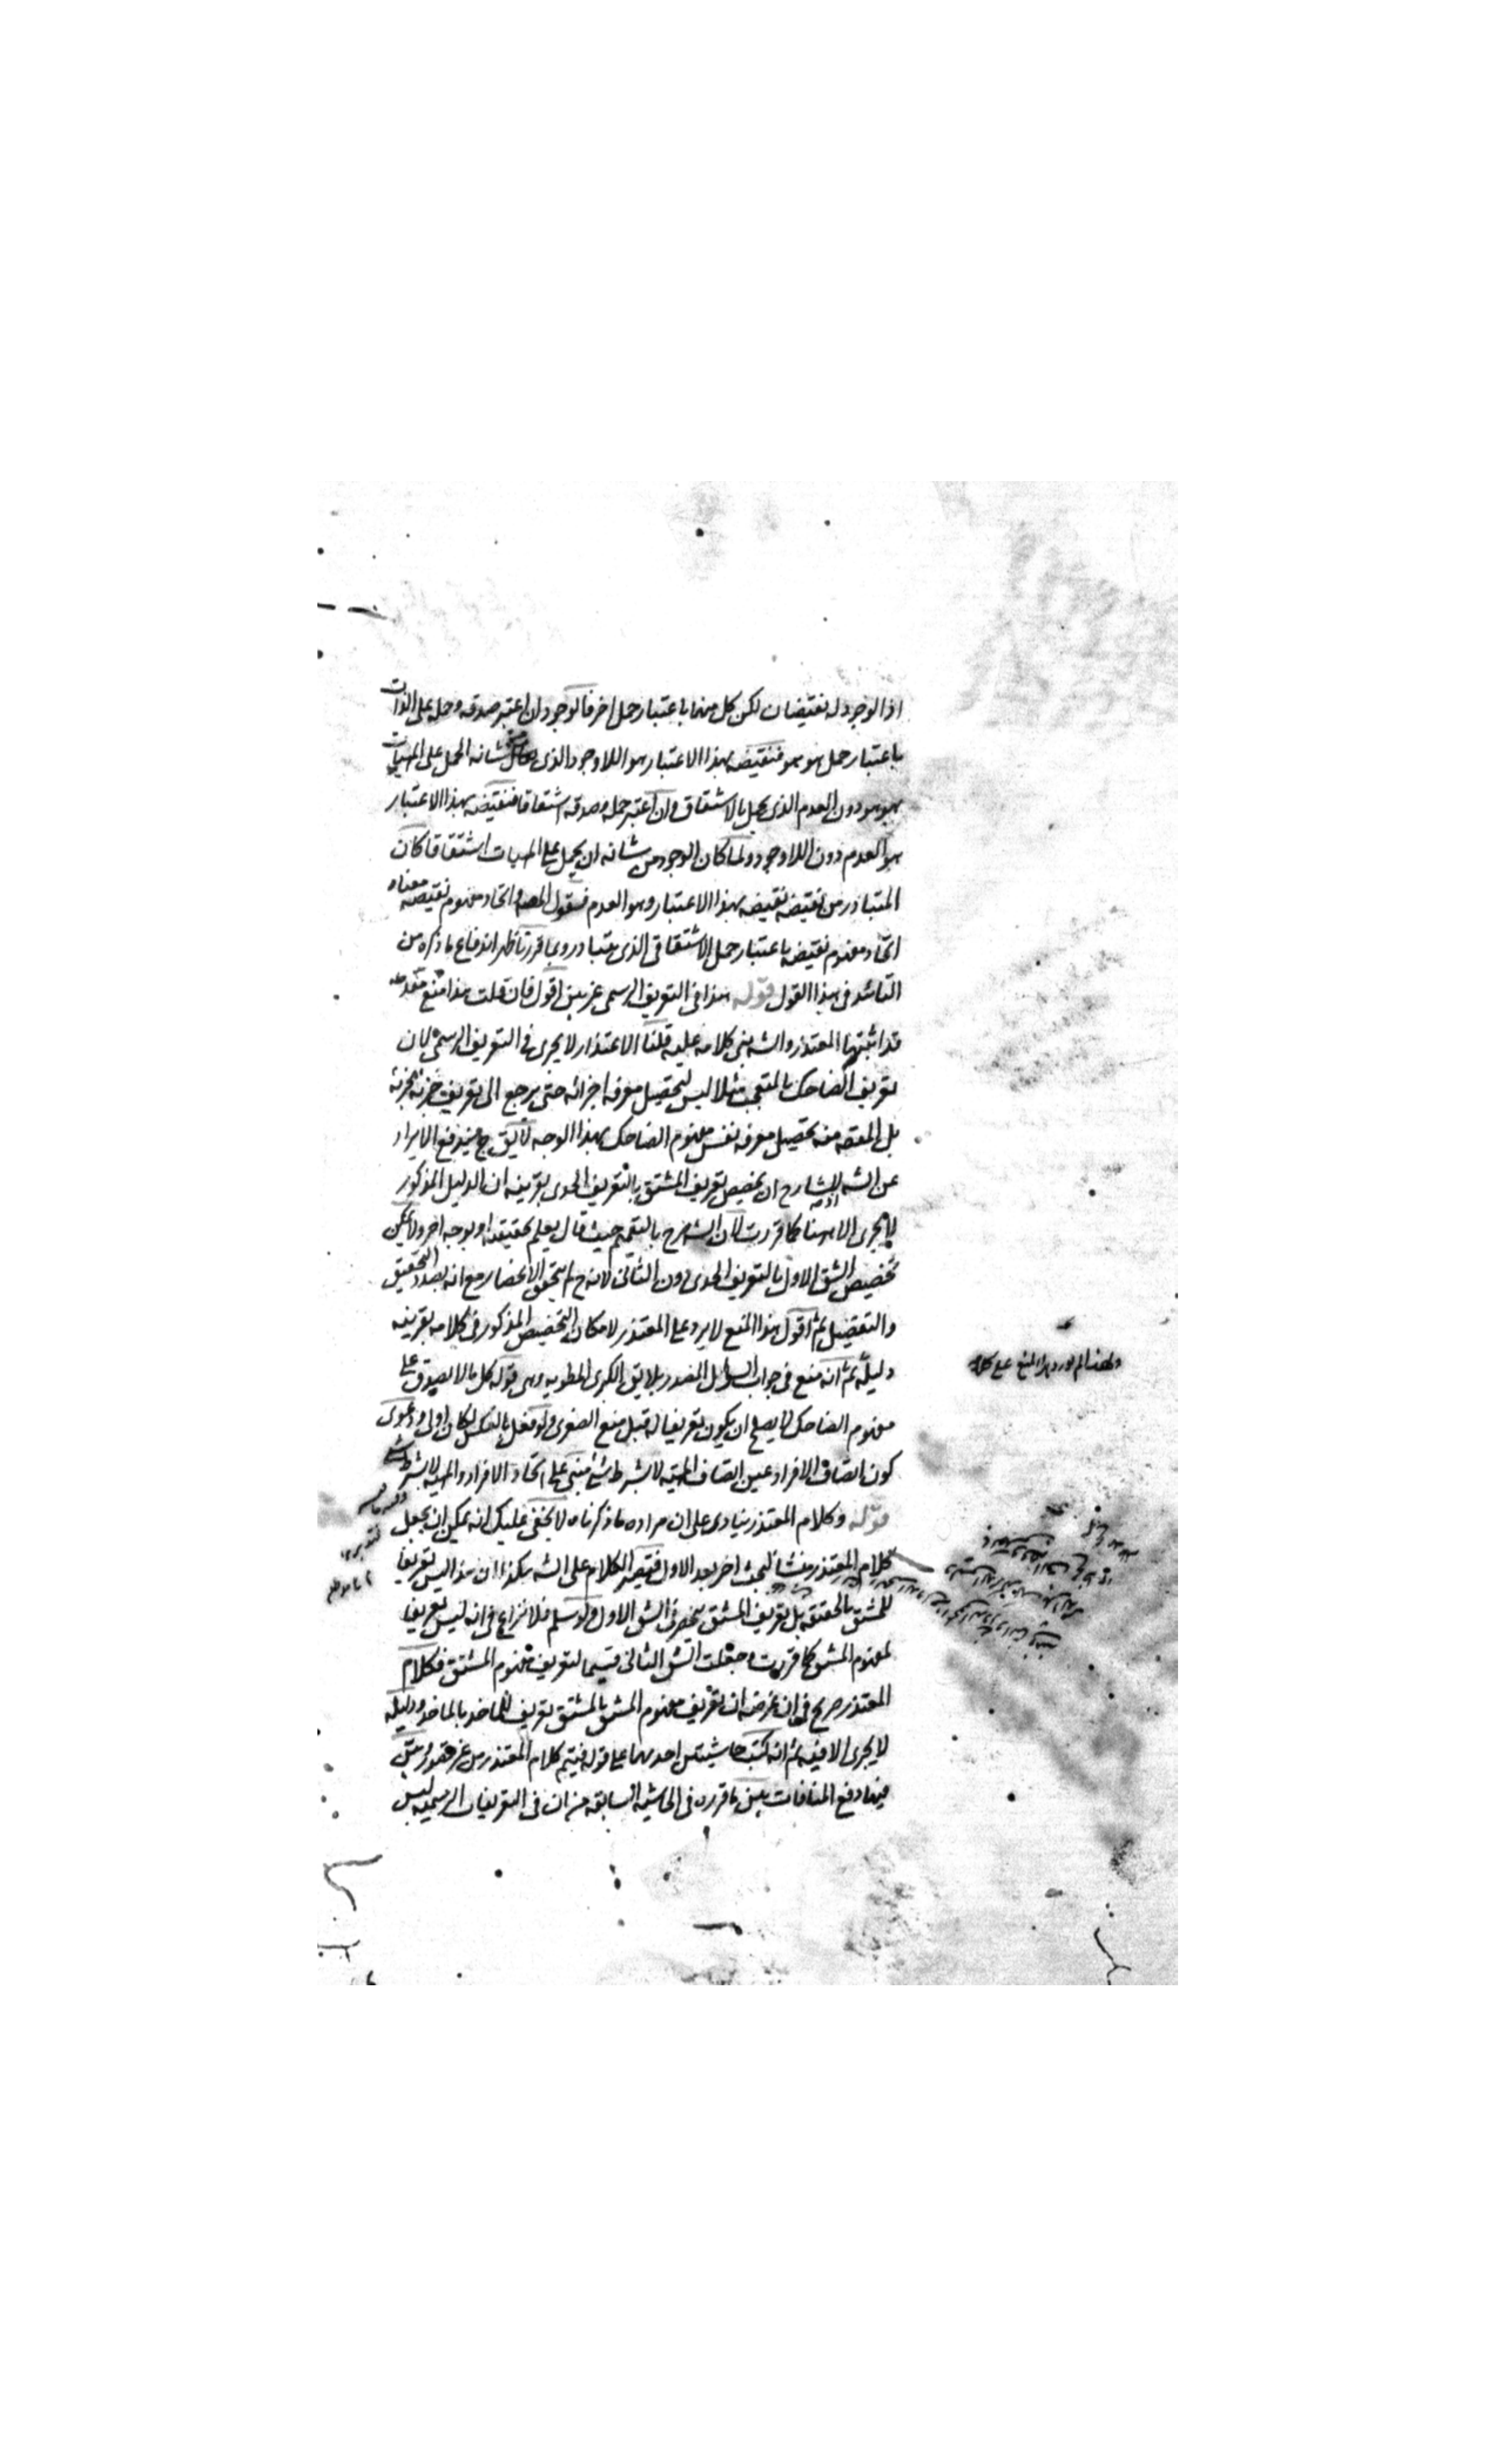 اذ الوجود له نقيضان لكن كل منهما باعتبار حمل اخر فالوجود ان اعتبر صدقه وحمله على الذات
باعتبار حمل هو هو فنقيضه بهذا الاعتبار هو اللاوجود الذى من شانه الحمل على المهيات
بهو هو دون العدم الذى يحمل بالاشتقاق وان اعتبر حمله وصدقه اشتقاقا فنقيضه بهذا الاعتبار
هو العدم دون اللاوجود ولما كان الوجود من شانه ان يحمل على المهيات اشتقاقا كان
المتبادر من نقيضه نقيضه بهذا الاعتبار وهو العدم فيقول المصه واتحاد مفهوم نقيضه معناه
اتحاد مفهوم نقيضه باعتبار حمل الاشتقاقى الذى يتبادر وبما قررنا ظهر اندفاع ما ذكره من
فى هذا القول قوله هذا فى التعريف الرسمى غير بين اقول فان قلت هذا منع مقدمة
قد اثبتها المعتذر والشه بنى كلامه عليه قلنا الاعتذار لا يجرى فى التعريف الرسمى لان
تعريف الضاحك بالمتعجب مثلا ليس لتحصيل معرفة اجزائه حتى يرجع الى تعريف جزئه بجزئه
بل المقصه منه تحصيل معرفة نفس مفهوم الضاحك بهذا الوجه لا يق ح يندفع الايراد
عن الشه اذ له ان يخصص تعريف المشتق بالتعريف الحدى بقرينة ان الدليل المذكور
لا يجرى الا هنا كما قررت لان الشه صرح بالتعميم حيث قال يعلم بحقيقته او بوجه اخر ولا يمكن
تخصيص الشق الاول بالتعريف الحدى دون الثانى لانه ح لم يتحقق الانحصار مع انه بصدد التحقيق
والتفصيل ثم اقول هذا المنع لا يرد على المعتذر لامكان التخصيص المذكور فى كلامه بقرينة
دليله ثم انه منع فى جواب السؤال المصدر بلا يق الكبرى المطوية وهى قوله كل ما لا يصدق على
مفهوم الضاحك لا يصلح ان يكون تعريفا له قبل منع الصغرى ولو فعل بالعكس لكان اولى ودعوى
كون اتصاف الافراد عين اتصاف المهية لا بشرط شئ مبنى على اتحاد الافراد والمهية لا بشرط شئ
قوله وكلام المعتذر ينادى على ان مراده ما ذكرناه لا يخفى عليك انه يمكن ان يجعل
كلام المعتذر منشأ لبحث اخر بعد الاول فتقرير الكلام على الشه هكذا ان هذا ليس تعريفا
للمشتق بالحقيقة بل تعريف المشتق منحصر فى الشق الاول ولو سلم فلا نزاع فى انه ليس تعريفا
لمفهوم المشتق كما قررت وجعلت الشق الثانى قسيما لتعريف مفهوم المشتق فكلام
المعتذر صريح فى ان غرضه ان تعريف مفهوم المشتق بالمشتق تعريف للماخذ بالماخذ ودليله
لا يجرى الا فيه ثم انه كتب حاشيتين احدهما على قوله فيتم كلام المعتذر من غير
فيها دفع المنافات بين ما قرره فى الحاشية السابقة من ان فى التعريفات الرسمية ليس
ولهذا لم يورد هذا المنع على كلامه